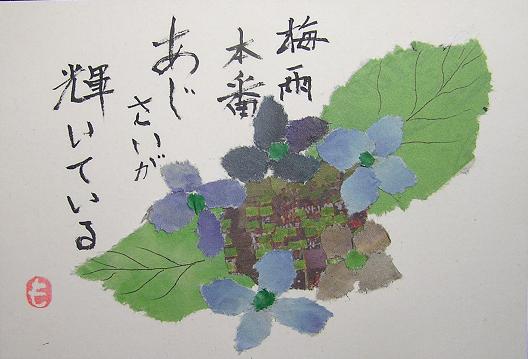 梅雨
本番
あじ
さいが
輝いている